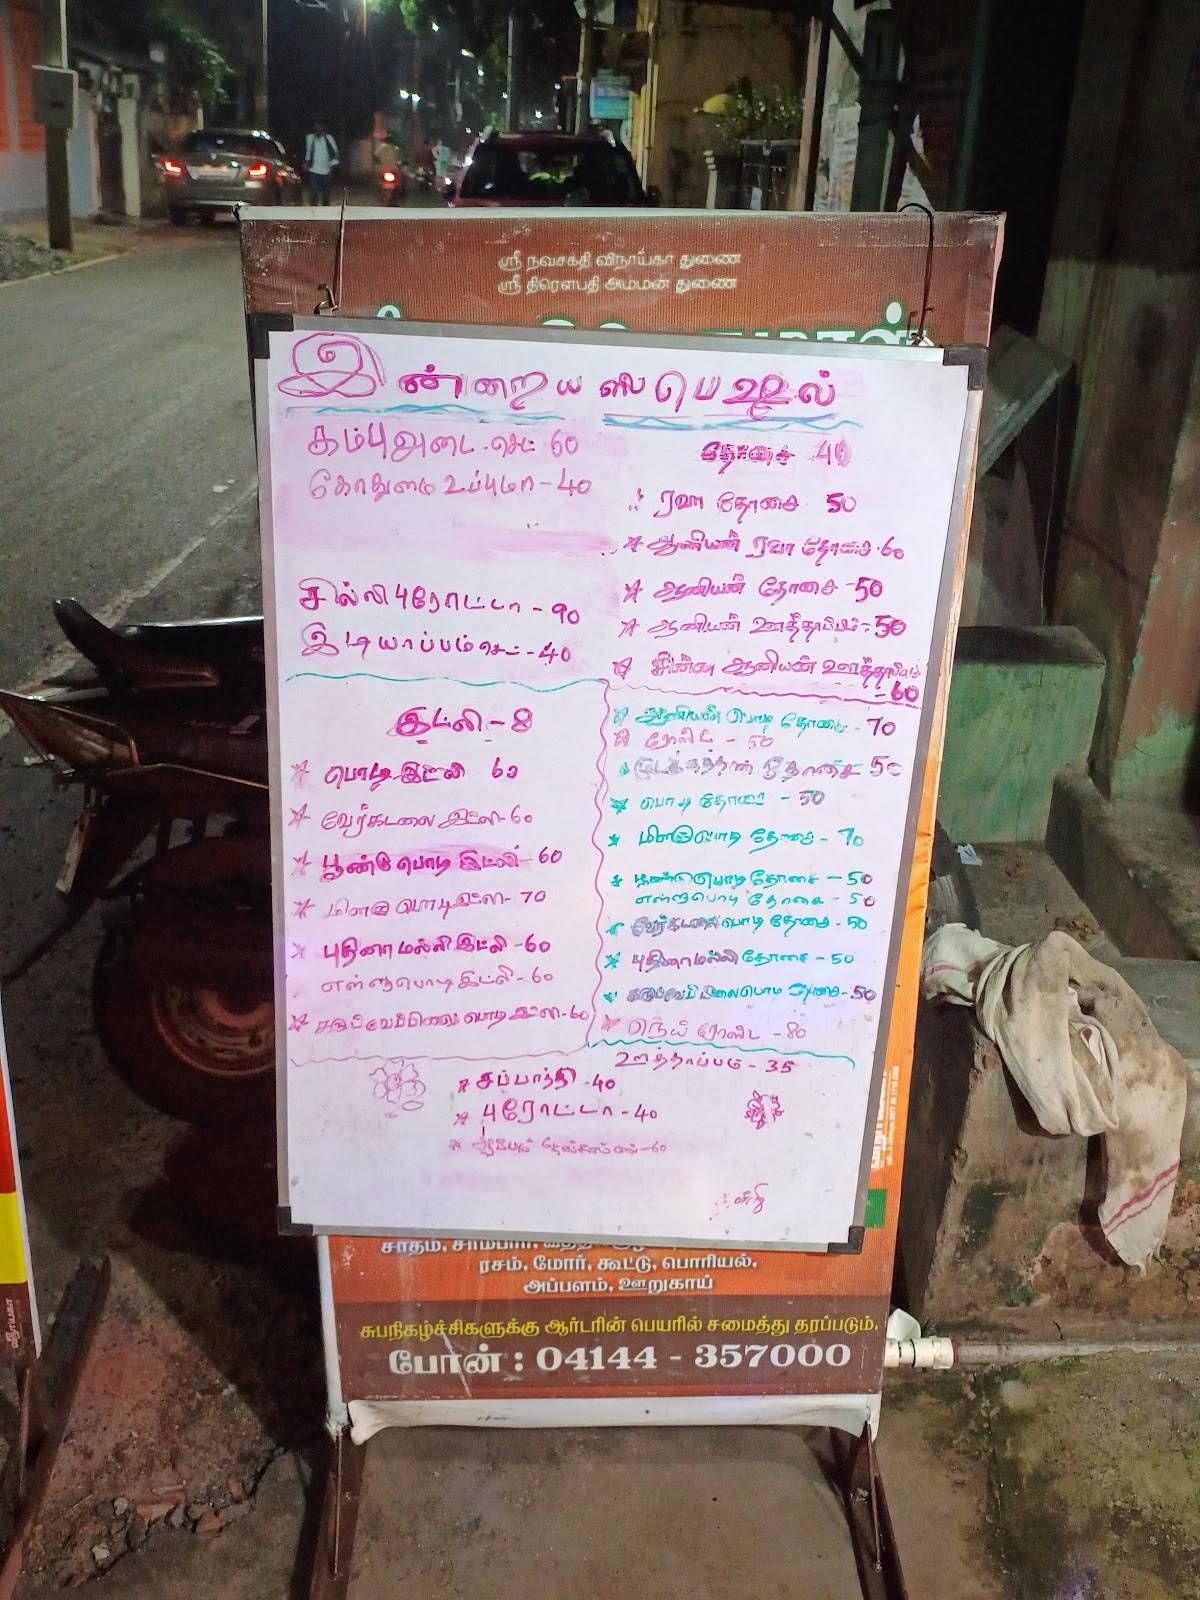 ஸ்ரீ நவசக்தி விநாய்கா துணை
ஸ்ரீ திரௌபதி அம்மன் துணை
இன்றைய ஸ்பெஷல்
கம்பு அடை செட் 60
கோதுமை உப்புமா - 40
சில்லி புரோட்டா - 90
இடியாப்பம் செட் - 40
தோசை 40
ரவா தோசை 50
ஆனியன் ரவா தோசை 60
ஆனியன் தோசை - 50
ஆனியன் ஊத்தாப்பம் - 50
சின்ன ஆனியன் ஊத்தாப்பம்
- 60
இட்லி - 8
பொடி இட்லி 60
வேர்கடலை இட்லி - 60
பூண்டு பொடி இட்லி - 60
மிளகு பொடி இட்லி - 70
புதினா மல்லி இட்லி - 60
எள்ளு பொடி இட்லி - 60
கருவேப்பிலை பொடி இட்லி - 60
ஆனியன் பொடி தோசை - 70
ரோஸ்ட் - 50
முடக்கத்தான் தோசை 50
பொடி தோசை - 50
மிளகு பொடி தோசை - 70
பூண்டு பொடி தோசை - 50
எள்ளு பொடி தோசை - 50
வேர்கடலை பொடி தோசை - 50
புதினா மல்லி தோசை - 50
கருவேப்பிலை பொடி தோசை - 50
நெய் ரோஸ்ட் - 80
ஊத்தாப்பம் - 35
சப்பாத்தி - 40
புரோட்டா - 40
சாதம், சாம்பார்,
ரசம், மோர், கூட்டு, பொரியல்,
அப்பளம், ஊறுகாய்
சுபநிகழ்ச்சிகளுக்கு ஆர்டரின் பெயரில் சமைத்து தரப்படும்.
போன் : 04144 - 357000